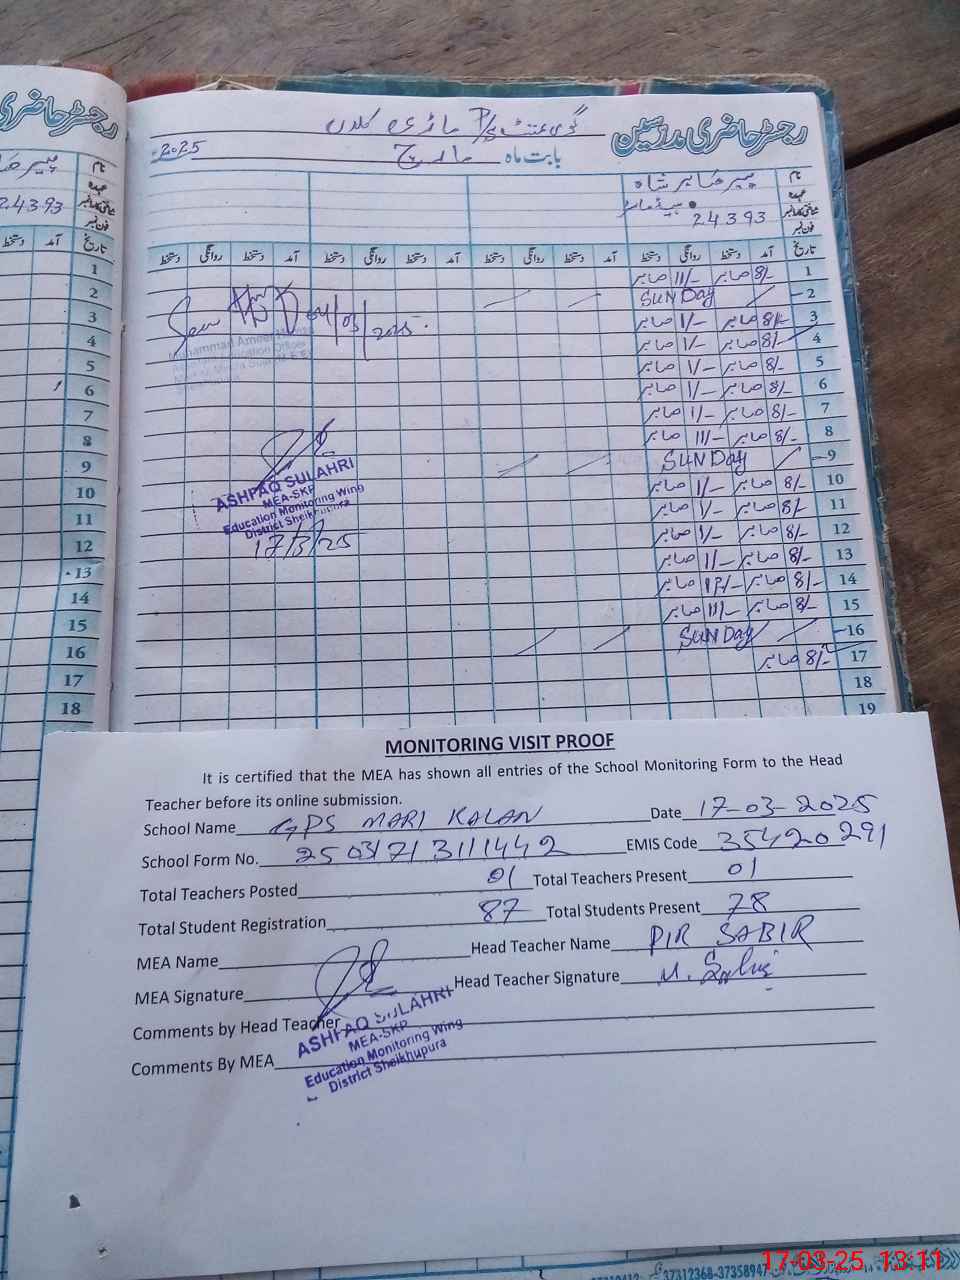 رجسٹر حاضری
رجسٹر حاضری مدرسین
گورنمنٹ P/S ماڑی کلاں
بابت ماہ مارچ 2025
نام پیر صابر شاہ
عہدہ ہیڈ ماسٹر
شناختی کارڈ نمبر 24393
فون نمبر
24393
تاریخ آمد دستخط روانگی دستخط آمد دستخط روانگی دستخط آمد دستخط روانگی دستخط آمد دستخط روانگی دستخط
1 8/- صابر 11/- صابر
2 SUNDAY
3 8/- صابر 1/- صابر
4 8/- صابر 1/- صابر
5 8/- صابر 1/- صابر
6 8/- صابر 1/- صابر
7 8/- صابر 1/- صابر
8 8/- صابر 11/- صابر
9 SUNDAY
10 8/- صابر 1/- صابر
11 8/- صابر 1/- صابر
12 8/- صابر 1/- صابر
13 8/- صابر 1/- صابر
14 8/- صابر 12/- صابر
15 8/- صابر 11/- صابر
16 SUNDAY
17 8/- صابر
18
19
Seen
04/03/2025.
Muhammad Ameer
ASHFAQ SULAHRI
MEA-SKP
Education Monitoring Wing
District Sheikhupura
17/3/25
1
2
3
4
5
6
7
8
9
10
11
12
13
14
15
16
17
18
MONITORING VISIT PROOF
It is certified that the MEA has shown all entries of the School Monitoring Form to the Head
Teacher before its online submission.
School Name GPS MARI KALAN Date 17-03-2025
School Form No. 2503171311442 EMIS Code 35420291
Total Teachers Posted 01 Total Teachers Present 01
Total Student Registration 87 Total Students Present 78
MEA Name Head Teacher Name PIR SABIR
MEA Signature Head Teacher Signature M. Sabir
Comments by Head Teacher
Comments By MEA
ASHFAQ SULAHRI
MEA-SKP
Education Monitoring Wing
District Sheikhupura
37312368-37358947
17-03-25 13:11